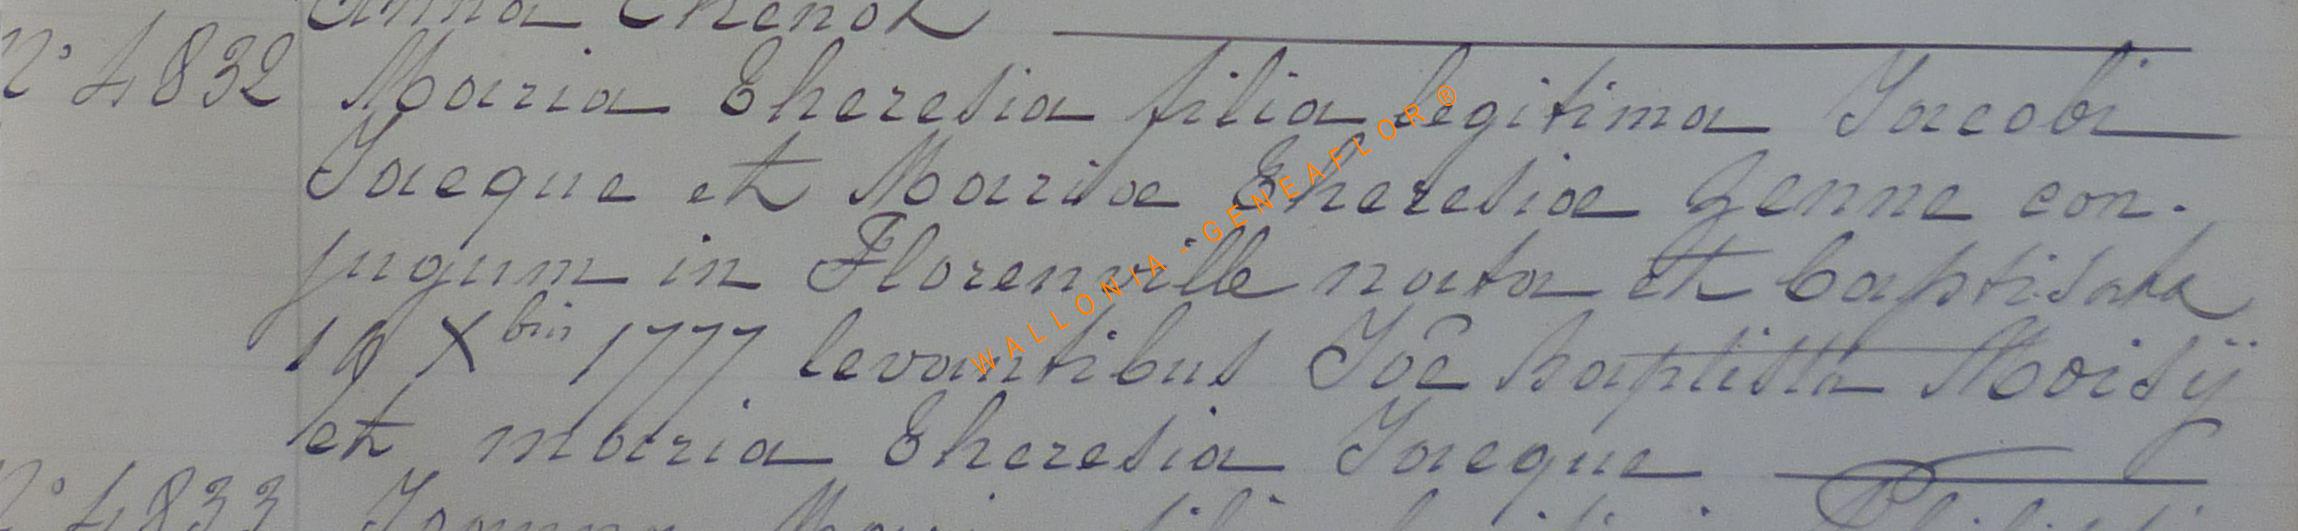 Anna Chenot
N° 4832 Maria Theresia filia legitima Jacobi
Jacque et Mariæ Theresiæ Genne con-
jugum in Florenville nata et baptisata
19 Xbris 1777 levantibus Joê Baptista Moisÿ
et maria Theresia Jacque
N° 4833
WALLONIA - GENEAFLOR ®